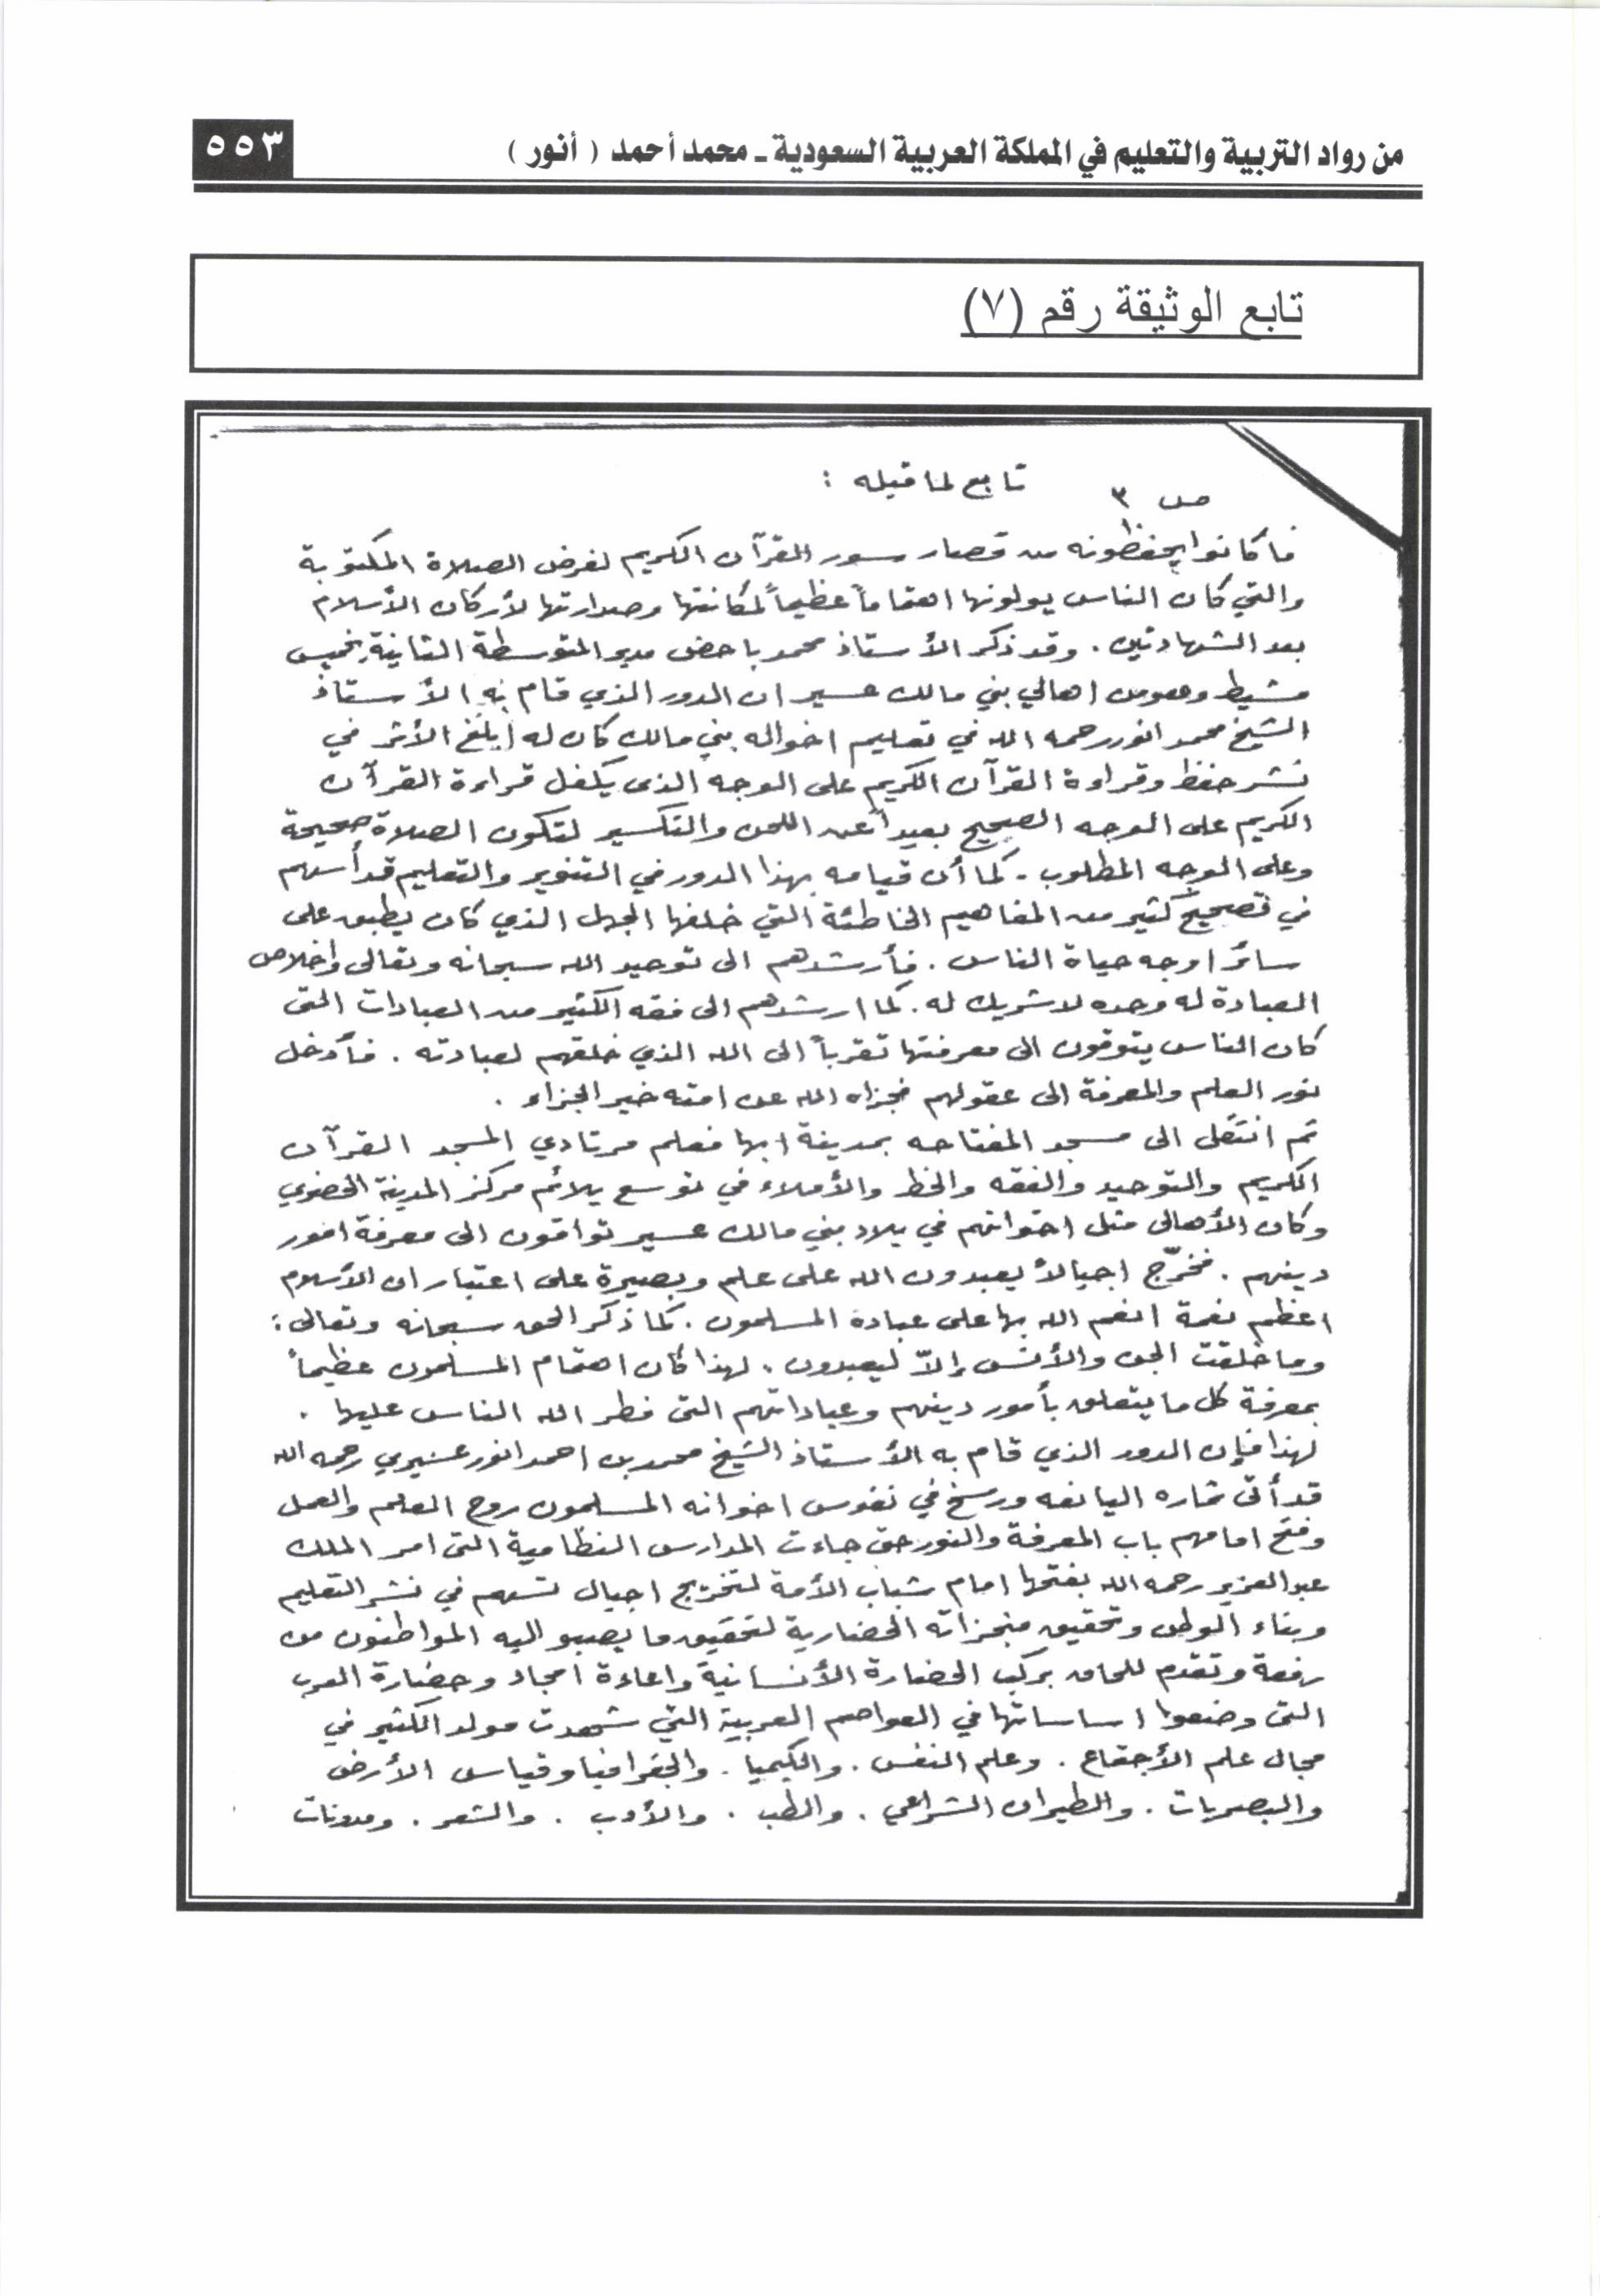 من رواد التربية والتعليم في المملكة العربية السعودية ـ محمد أحمد ( أنور )
٥٥٣
تابع الوثيقة رقم (٧)
ص ٣ تابع لما قبله :
فأكانوا يحفظونه من قصار سور القرآن الكريم لغرض الصلاة المكتوبة
والتي كان الناس يولونها اهتماماً عظيماً لمكانتها وصدارتها لأركان الأسلام
بعد الشهادتين . وقد ذكر الأستاذ محمد باحض مدير المتوسطة الثانية بخميس
مشيط وهو من اهالي بني مالك عسير ان الدور الذي قام به الأستاذ
الشيخ محمد انور رحمه الله في تعليم اخواله بني مالك كان له أبلغ الأثر في
نشر حفظ وقراءة القرآن الكريم على الوجه الذى يكفل قراءة القرآن
الكريم على الوجه الصحيح بعيداً عن اللحن والتكسير لتكون الصلاة صحيحة
وعلى الوجه المطلوب . كما أن قيامه بهذا الدور في التنوير والتعليم قد أسهم
في تصحيح كثير من المفاهيم الخاطئة التي خلفها الجهل الذي كان يطبق على
سائر اوجه حياة الناس . فأرشدهم الى توحيد الله سبحانه وتعالى واخلاص
العبادة له وحده لا شريك له . كما ارشدهم الى فقه الكثير من العبادات التى
كان الناس يتوقون الى معرفتها تقرباً الى الله الذي خلقهم لعبادته . فأدخل
نور العلم والمعرفة الى عقولهم فجزاه الله عن امته خير الجزاء .
ثم انتقل الى مسجد المفتاحه بمدينة ابها فعلم مرتادي المسجد القرآن
الكريم والتوحيد والفقه والخط والأملاء في توسع يلائم مركز المدينة الحضوي
وكان الأهالى مثل اخوانهم في بلاد بني مالك عسير تواقون الى معرفة امور
دينهم . فخرّج اجيالاً يعبدون الله على علم وبصيرة على اعتبار ان الأسلام
اعظم نعمة انعم الله بها على عبادة المسلمون . كما ذكر الحق سبحانه وتعالى :
وما خلقت الجن والأنس إلاّ ليعبدون . لهذا كان اهتمام المسلمون عظيماً
بمعرفة كل ما يتعلق بأمور دينهم وعباداتهم التى فطر الله الناس عليها .
لهذا فإن الدور الذي قام به الأستاذ الشيخ محمد بن احمد انور عسيري رحمه الله
قد أتى ثماره اليانعه ورسخ في نفوس اخوانه المسلمون روح العلم والعمل
وفتح امامهم باب المعرفة والنور حتى جاءت المدارس النظامية التى امر الملك
عبد العزيز رحمه الله بفتحها امام شباب الأمة لتخريج اجيال تسهم في نشر التعليم
وبناء الوطن وتحقيق منجزاته الحضارية لتحقيق ما يصبو اليه المواطنون من
رفعة وتقدم للحاق بركب الحضارة الأنسانية واعادة امجاد وحضارة العرب
التى وضعوا اساساتها في العواصم العربية التي شهدت مولد الكثير في
مجال علم الأجتماع . وعلم النفس . والكيميا . والجغرافيا وقياس الأرض
والبصريات . والطيران الشراعي . والطب . والأدب . والشعر . ومدونات